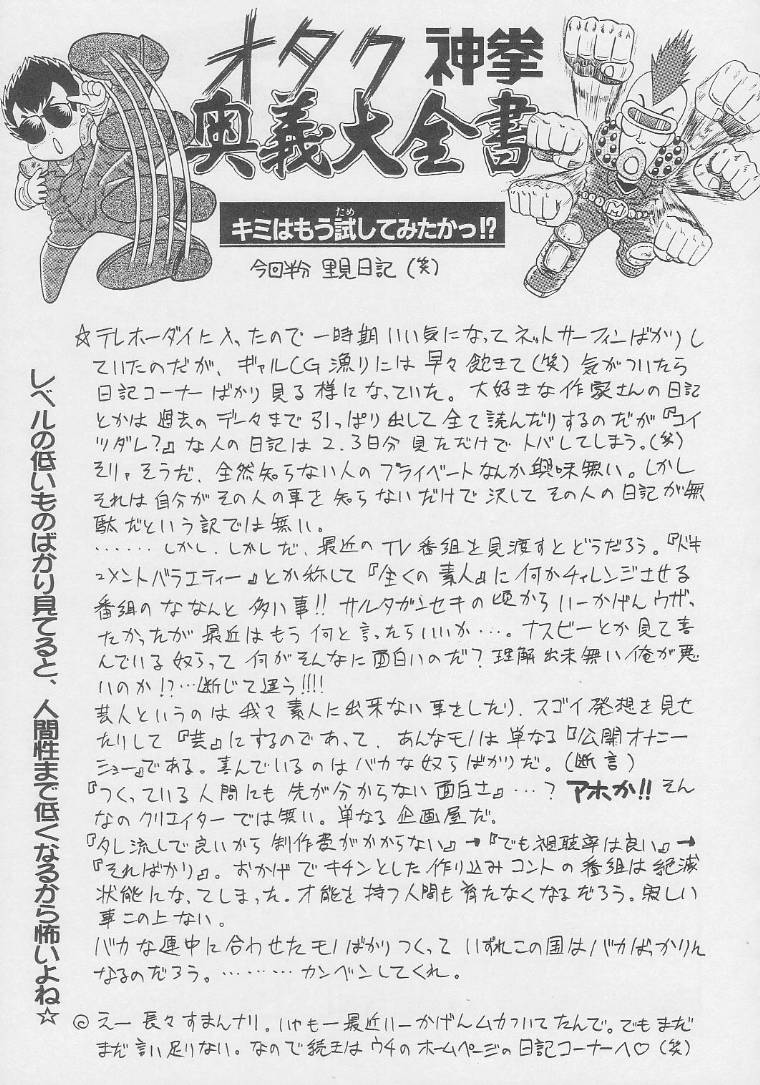 オタク神拳
奥義大全書
キミはもう試してみたかっ!?
ため
今回半分 里見日記 (笑)
☆テレホーダイに入ったので 一時期 いい気になって ネットサーフィンばかりし
ていたのだが、ギャルCG漁りには 早々飽きて(笑)気がついたら
日記コーナーばかり見る様になっていた。大好きな作家さんの日記
とかは過去のデータまで引っぱり出して全て読んだりするのだが『コイ
ツダレ?』な人の日記は2、3日分見ただけでトバしてしまう。(笑)
そりゃそうだ、全然知らない人のプライベートなんか興味無い。しかし
それは自分がその人の事を知らないだけで決してその人の日記が無
駄だという訳では無い。
……しかし、しかしだ、最近のTV番組を見渡すとどうだろう。『ドキ
ュメントバラエティー』とか称して『全くの素人』に何かチャレンジさせる
番組のななんと多い事!! サルガンセキの頃からいーかげんウザっ
たかったが最近はもう何と言ったらいいか…。ナスビーとか見て喜
んでいる奴らって何がそんなに面白いのだ?理解出来無い俺が悪
いのか!?…断じて違う!!!!
芸人というのは我々素人に出来ない事をしたり、スゴイ発想を見せ
たりして『芸』にするのであって、あんなモノは単なる『公開オナニー
ショー』である。喜んでいるのはバカな奴らばかりだ。(断言)
『つくっている人間にも先が分からない面白さ』…?アホか!!そん
なのクリエイターでは無い。単なる企画屋だ。
『タレ流しで良いから制作費がかからない』→『でも視聴率は良い』→
『そればかり』。おかげでキチンとした作り込みコントの番組は絶滅
状態になってしまった。才能を持つ人間も育たなくなるだろう。寂しい
事この上ない。
バカな連中に合わせたモノばかりつくって いずれこの国はバカばっかりん
なるのだろう。………カンベンしてくれ。
◎えー長々すまんナリ。いやも一最近いーかげんムカついてたんで。でもまだ
まだ言い足りない。なので続きはウチのホームページの日記コーナーへ♡(笑)
レベルの低いものばかり見てると、人間性まで低くなるから怖いよね☆
M